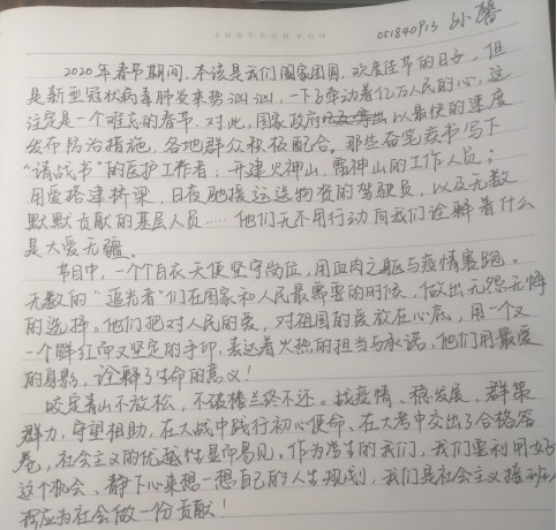 JUSTFORYOU
051840913 孙馨
2020年春节期间,本该是我们阖家团圆,欢度佳节的日子,但
是新型冠状病毒肺炎来势汹汹,一下子牵动着亿万人民的心,这
注定是一个难忘的春节,对此,国家政府以最快的速度
发布防治措施,各地群众积极配合。那些奋笔疾书写下
“请战书”的医护工作者;开建火神山、雷神山的工作人员;
用爱搭建桥梁,日夜驰援运送物资的驾驶员,以及无数
默默贡献的基层人员……他们无不用行动向我们诠释着什么
是大爱无疆。
节目中,一个个白衣天使坚守岗位,用血肉之躯与疫情赛跑。
无数的“追光者”们在国家和人民最需要的时候,做出无怨无悔
的选择。他们把对人民的爱,对祖国的爱放在心底,用一个又
一个鲜红而又坚定的手印,表达着火热的担当与承诺,他们用最爱
的身影,诠释了生命的意义!
咬定青山不放松,不破楼兰终不还。战疫情、稳发展,群策
群力,守望相助,在大战中践行初心使命、在大考中交出了合格答
卷,社会主义的优越性显而易见,作为学生的我们,我们要利用好
这个机会、静下心来想一想自己的人生规划,我们是社会主义接班
应为社会做一份贡献!